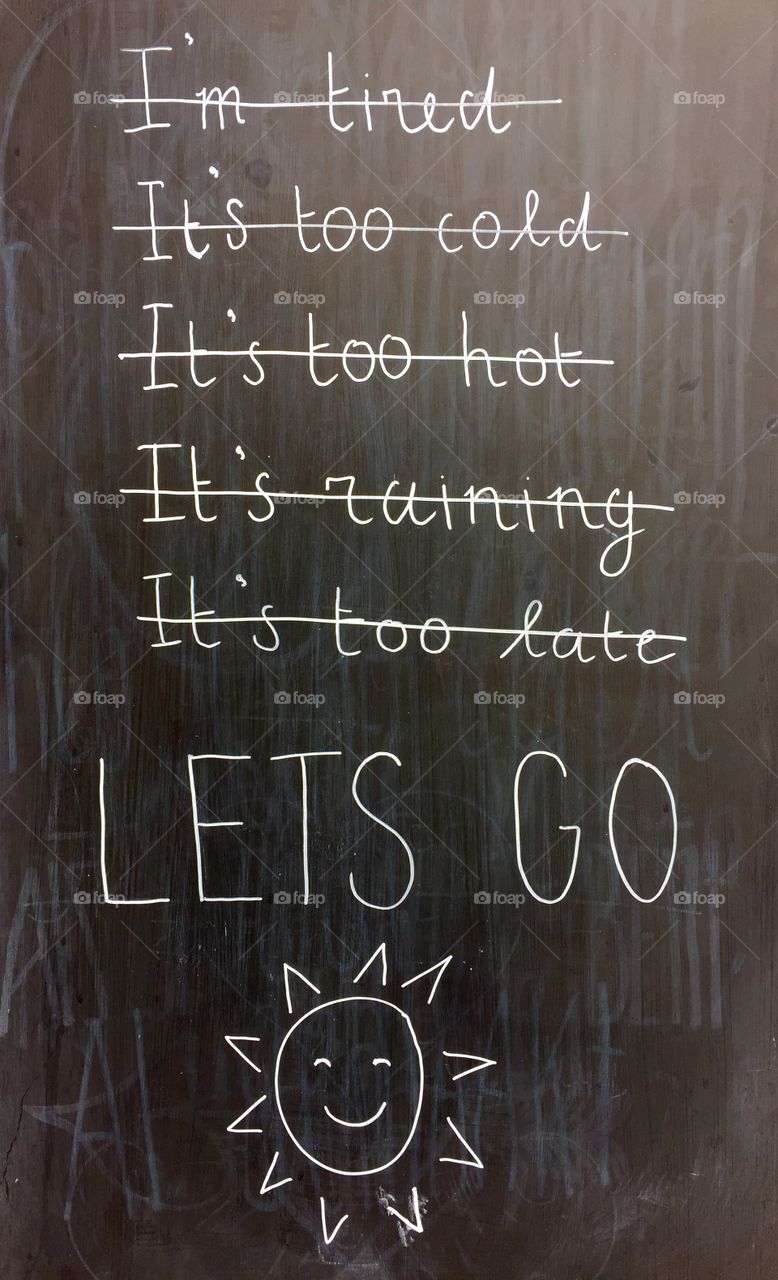 I'm tired
It's too cold
It's too hot
It's raining
It's too late
LETS GO